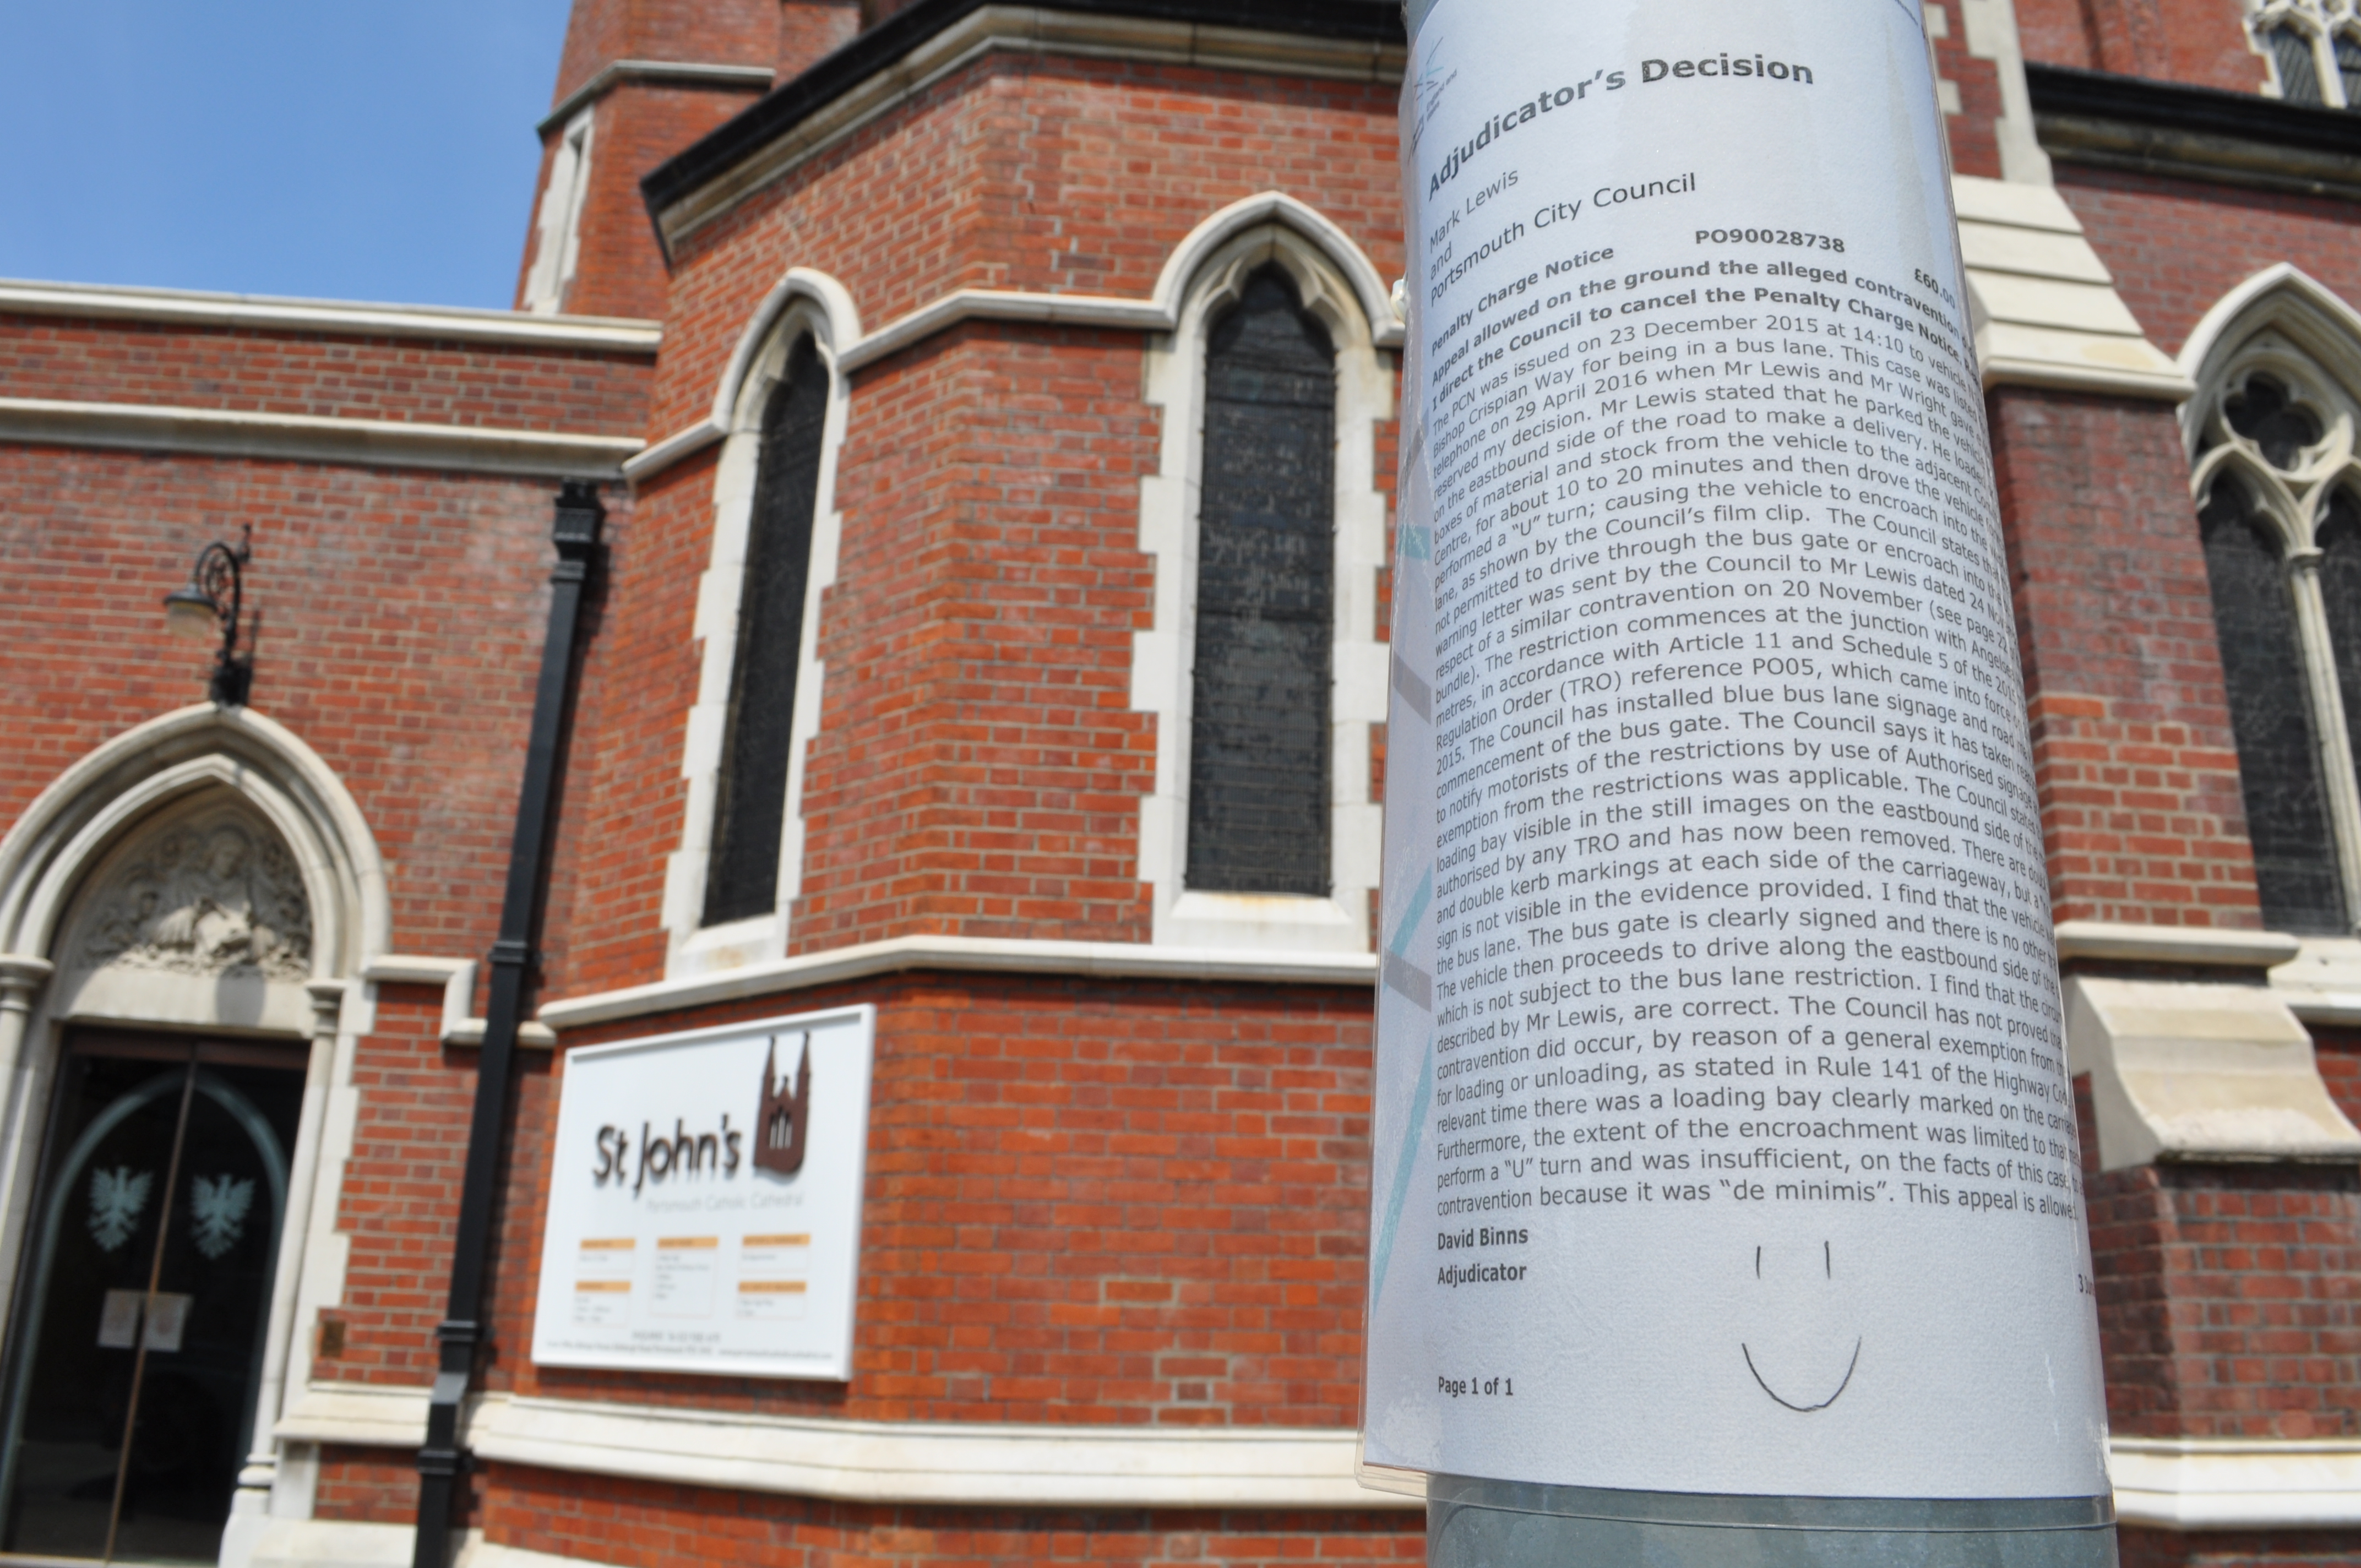 Adjudicator's Decision
Mark Lewis
and
Portsmouth City Council
Penalty Charge Notice PO90028738 £60.00
Appeal allowed on the ground the alleged contravention
I direct the Council to cancel the Penalty Charge Notice
The PCN was issued on 23 December 2015 at 14:10 to vehicle
Bishop Crispian Way for being in a bus lane. This case was listed
telephone on 29 April 2016 when Mr Lewis and Mr Wright gave
reserved my decision. Mr Lewis stated that he parked the vehicle
on the eastbound side of the road to make a delivery. He loaded
boxes of material and stock from the vehicle to the adjacent
Centre, for about 10 to 20 minutes and then drove the vehicle
performed a "U" turn; causing the vehicle to encroach into the
lane, as shown by the Council's film clip. The Council states that
not permitted to drive through the bus gate or encroach into the
warning letter was sent by the Council to Mr Lewis dated 24
respect of a similar contravention on 20 November (see page 22
bundle). The restriction commences at the junction with
metres, in accordance with Article 11 and Schedule 5 of the
Regulation Order (TRO) reference PO05, which came into force
2015. The Council has installed blue bus lane signage and road
commencement of the bus gate. The Council says it has taken
to notify motorists of the restrictions by use of Authorised signage
exemption from the restrictions was applicable. The Council states
loading bay visible in the still images on the eastbound side of the
authorised by any TRO and has now been removed. There are
and double kerb markings at each side of the carriageway, but a
sign is not visible in the evidence provided. I find that the vehicle
the bus lane. The bus gate is clearly signed and there is no other
The vehicle then proceeds to drive along the eastbound side of the
which is not subject to the bus lane restriction. I find that the
described by Mr Lewis, are correct. The Council has not proved
contravention did occur, by reason of a general exemption from
for loading or unloading, as stated in Rule 141 of the Highway
relevant time there was a loading bay clearly marked on the
Furthermore, the extent of the encroachment was limited to that
perform a "U" turn and was insufficient, on the facts of this case,
contravention because it was "de minimis". This appeal is allowed.
David Binns
Adjudicator
Page 1 of 1
St John's
Portsmouth Catholic Cathedral